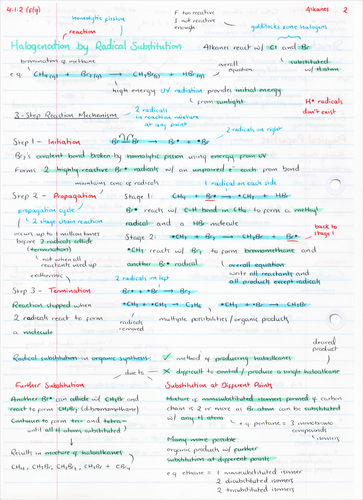 4.1.2 (f)(g)
homolytic fission
F too reactive
I not reactive
enough
Alkanes 2
reaction
goldilocks zone halogens
Halogenation by Radical Substitution
Alkanes react w/ Cl and Br
bromination of methane
overall
equation
substituted
w/ H atom
e.g. CH₄(g) + Br₂(g) → CH₃Br(g) + HBr(g)
high energy UV radiation provides initial energy
from sunlight
H• radicals
don't exist
3-Step Reaction Mechanism
2 radicals
in reaction mixture
at any point
2 radicals on right
Step 1 – Initiation Br–Br → Br• + •Br
Br₂'s covalent bond broken by homolytic fission using energy from UV
Forms 2 highly-reactive Br• radicals w/ an unpaired e⁻ each from bond
maintains conc of radicals
1 radical on each side
Step 2 – Propagation Stage 1: CH₄ + Br• → •CH₃ + HBr
propagation cycle
Br• reacts w/ C–H bond in CH₄ to form a methyl
2 stage chain reaction
radical and a HBr molecule
back to
stage 1
occurs up to 1 million times
Stage 2: •CH₃ + Br₂ → CH₃Br + Br•
before 2 radicals collide
(termination)
•CH₃ reacts w/ Br₂ to form bromomethane and
not when all
reactants used up
another Br• radical
overall equation
write all reactants and
all products except radicals
exothermic
2 radicals on left
Step 3 – Termination Br• + •Br → Br₂
Reaction stopped when •CH₃ + •CH₃ → C₂H₆ •CH₃ + •Br → CH₃Br
2 radicals react to form
radicals
removed
multiple possibilities/organic products
a molecule
desired
product
Radical substitution in organic synthesis ✓ method of producing haloalkanes
due to ✗ difficult to produce a single haloalkane
Further Substitution
Substitution at Different Points
Another Br• can collide w/ CH₃Br and
Mixture of monosubstituted isomers formed if carbon
react to form CH₂Br₂ (dibromomethane)
chain is 2 or more as Br atom can be substituted
Continues to form tri– and tetra–
w/ any H atom
until all H atoms substituted
e.g. pentane = 3 monobromo
compounds
isomers
Results in mixture of haloalkanes
Many more possible
organic products w/ further
CH₄, CH₃Br, CH₂Br₂, CHBr₃ + CBr₄
substitution at different points
e.g. ethane = 1 monosubstituted isomer
2 disubstituted isomers
2 trisubstituted isomers